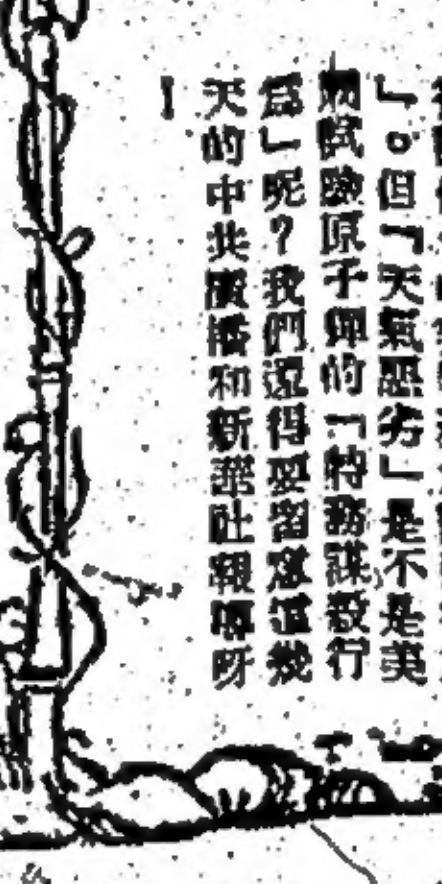 」。但「天氣惡劣」是不是美
國試驗原子彈的「特務謀殺行
爲」呢?我們還得要留意這幾
天的中共廣播和新華社報導呀
!